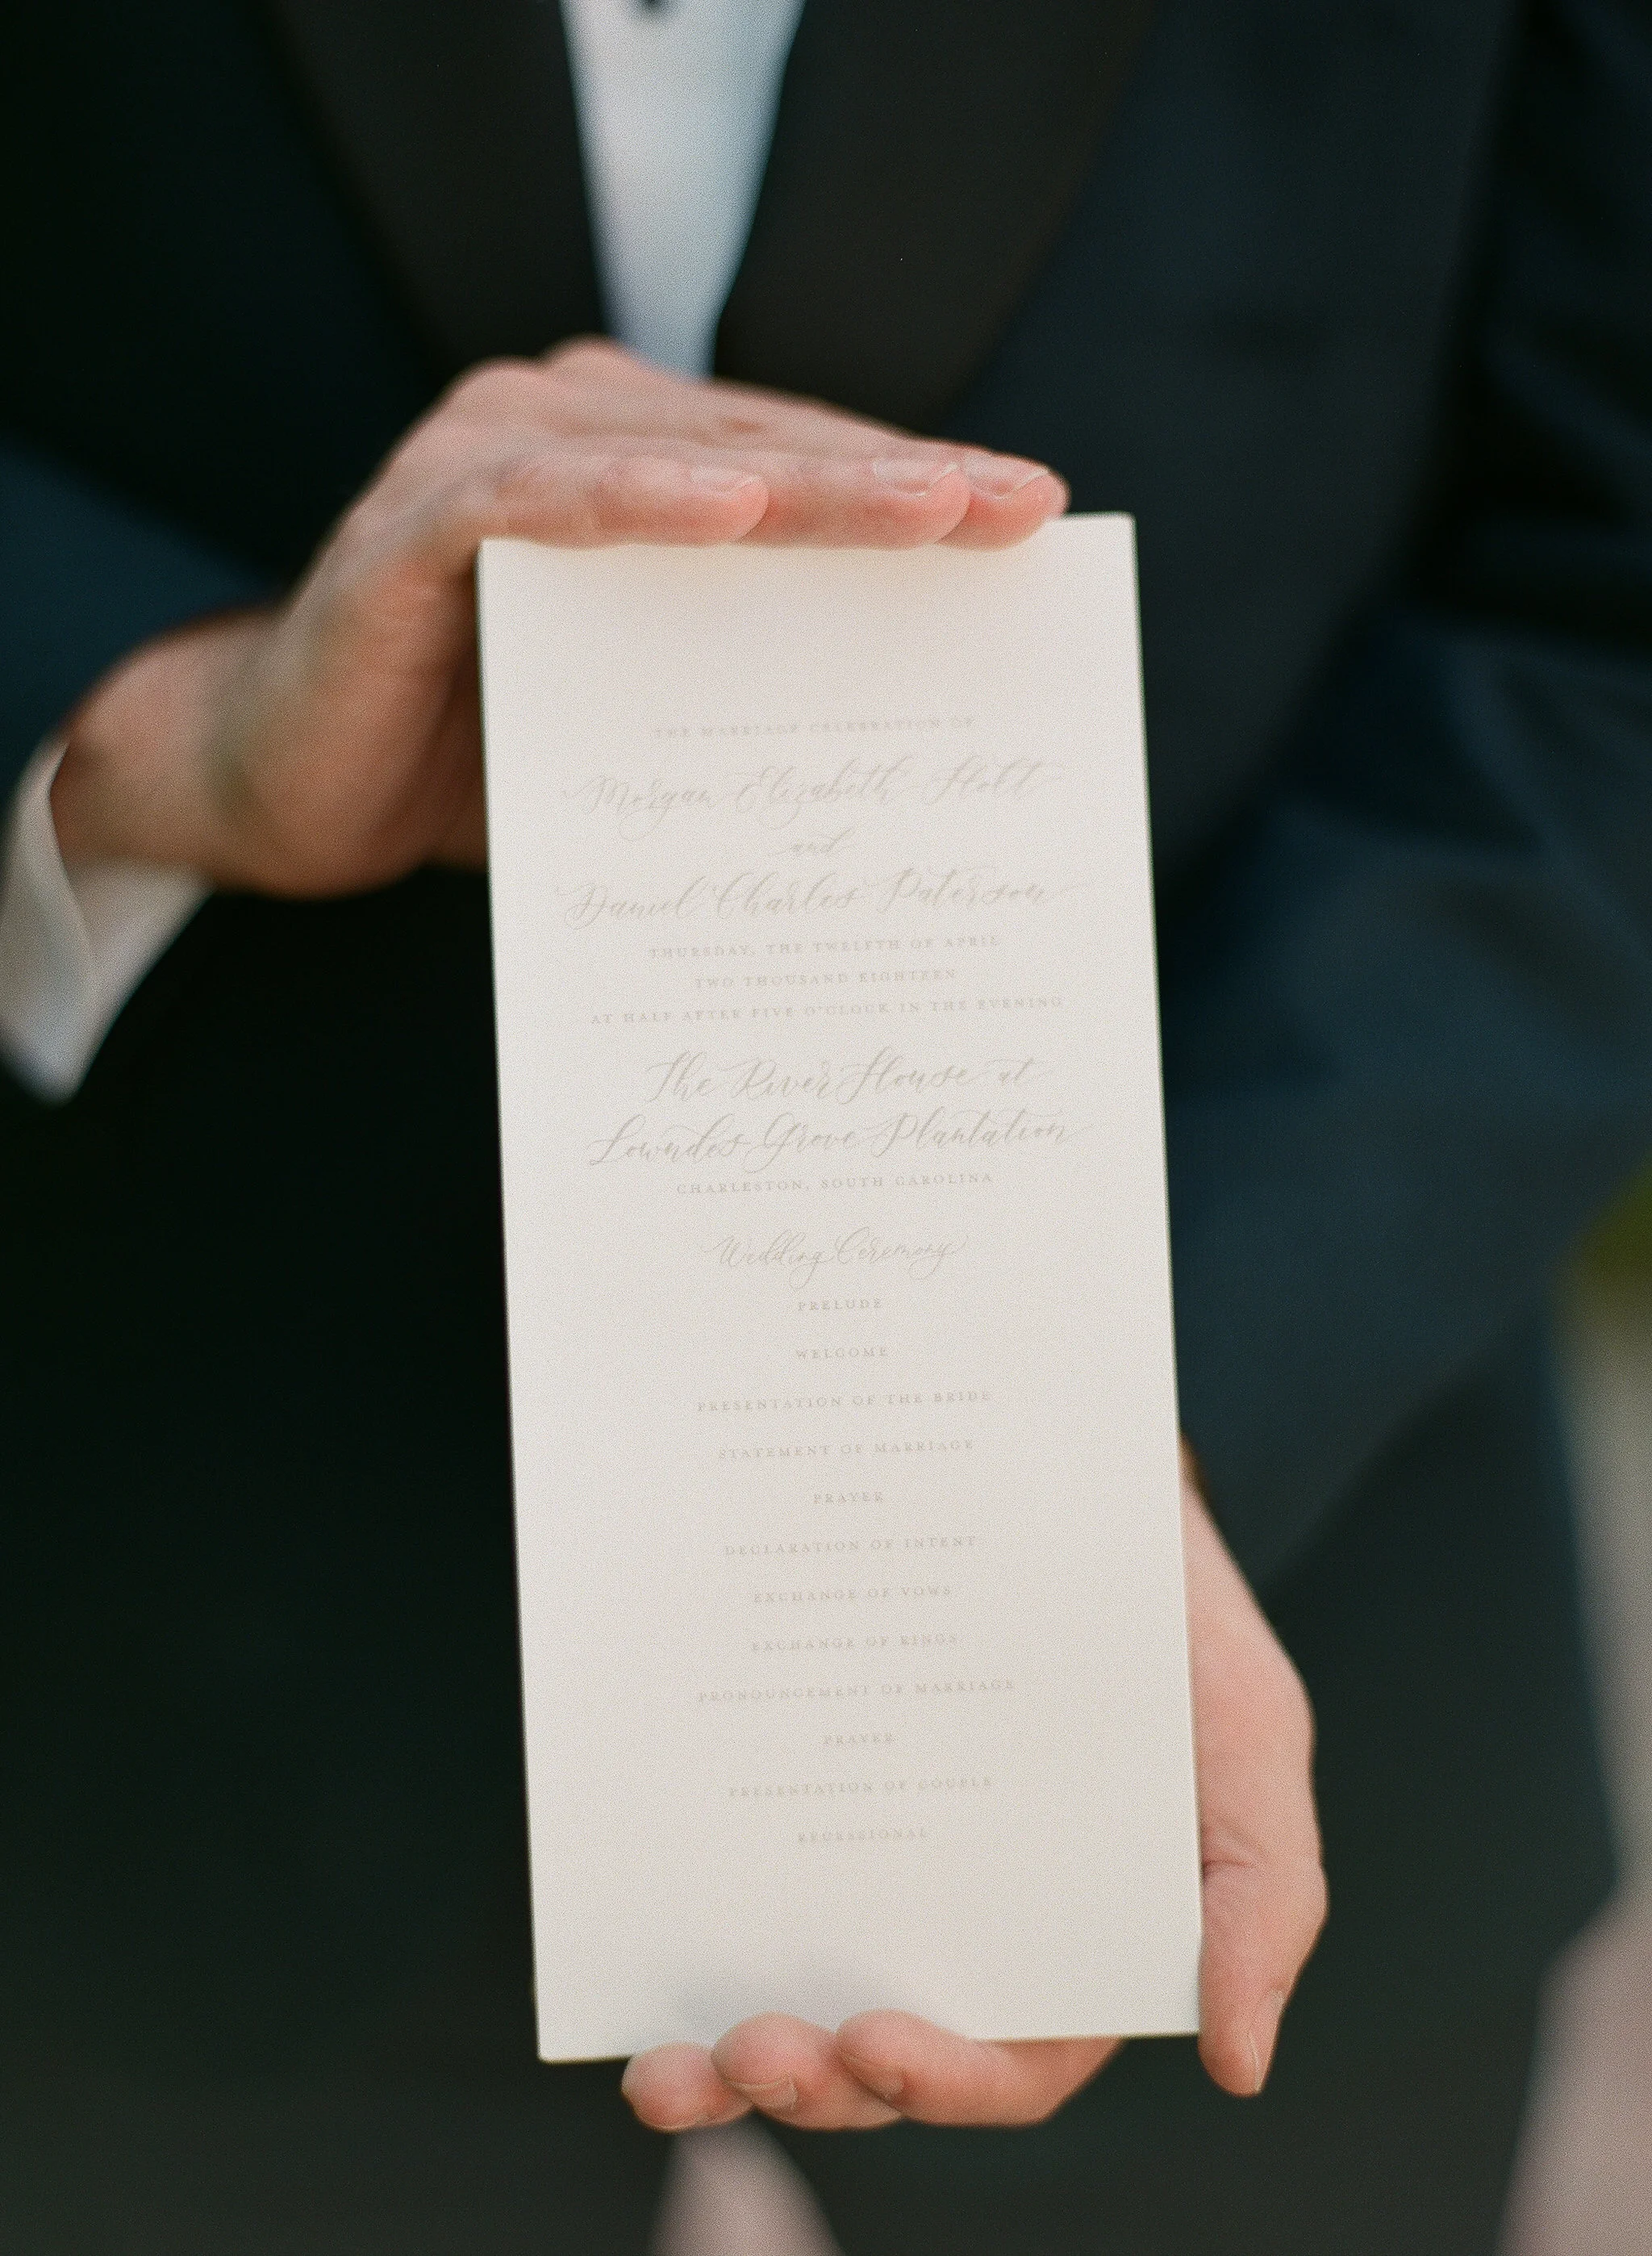 THE MARRIAGE CELEBRATION OF
Morgan Elizabeth Holt
and
Daniel Charles Paterson
THURSDAY, THE TWELFTH OF APRIL
TWO THOUSAND EIGHTEEN
AT HALF AFTER FIVE O'CLOCK IN THE EVENING
The River House at
Lowndes Grove Plantation
CHARLESTON, SOUTH CAROLINA
Wedding Ceremony
PRELUDE
WELCOME
PRESENTATION OF THE BRIDE
STATEMENT OF MARRIAGE
PRAYER
DECLARATION OF INTENT
EXCHANGE OF VOWS
EXCHANGE OF RINGS
PRONOUNCEMENT OF MARRIAGE
PRAYER
PRESENTATION OF COUPLE
RECESSIONAL